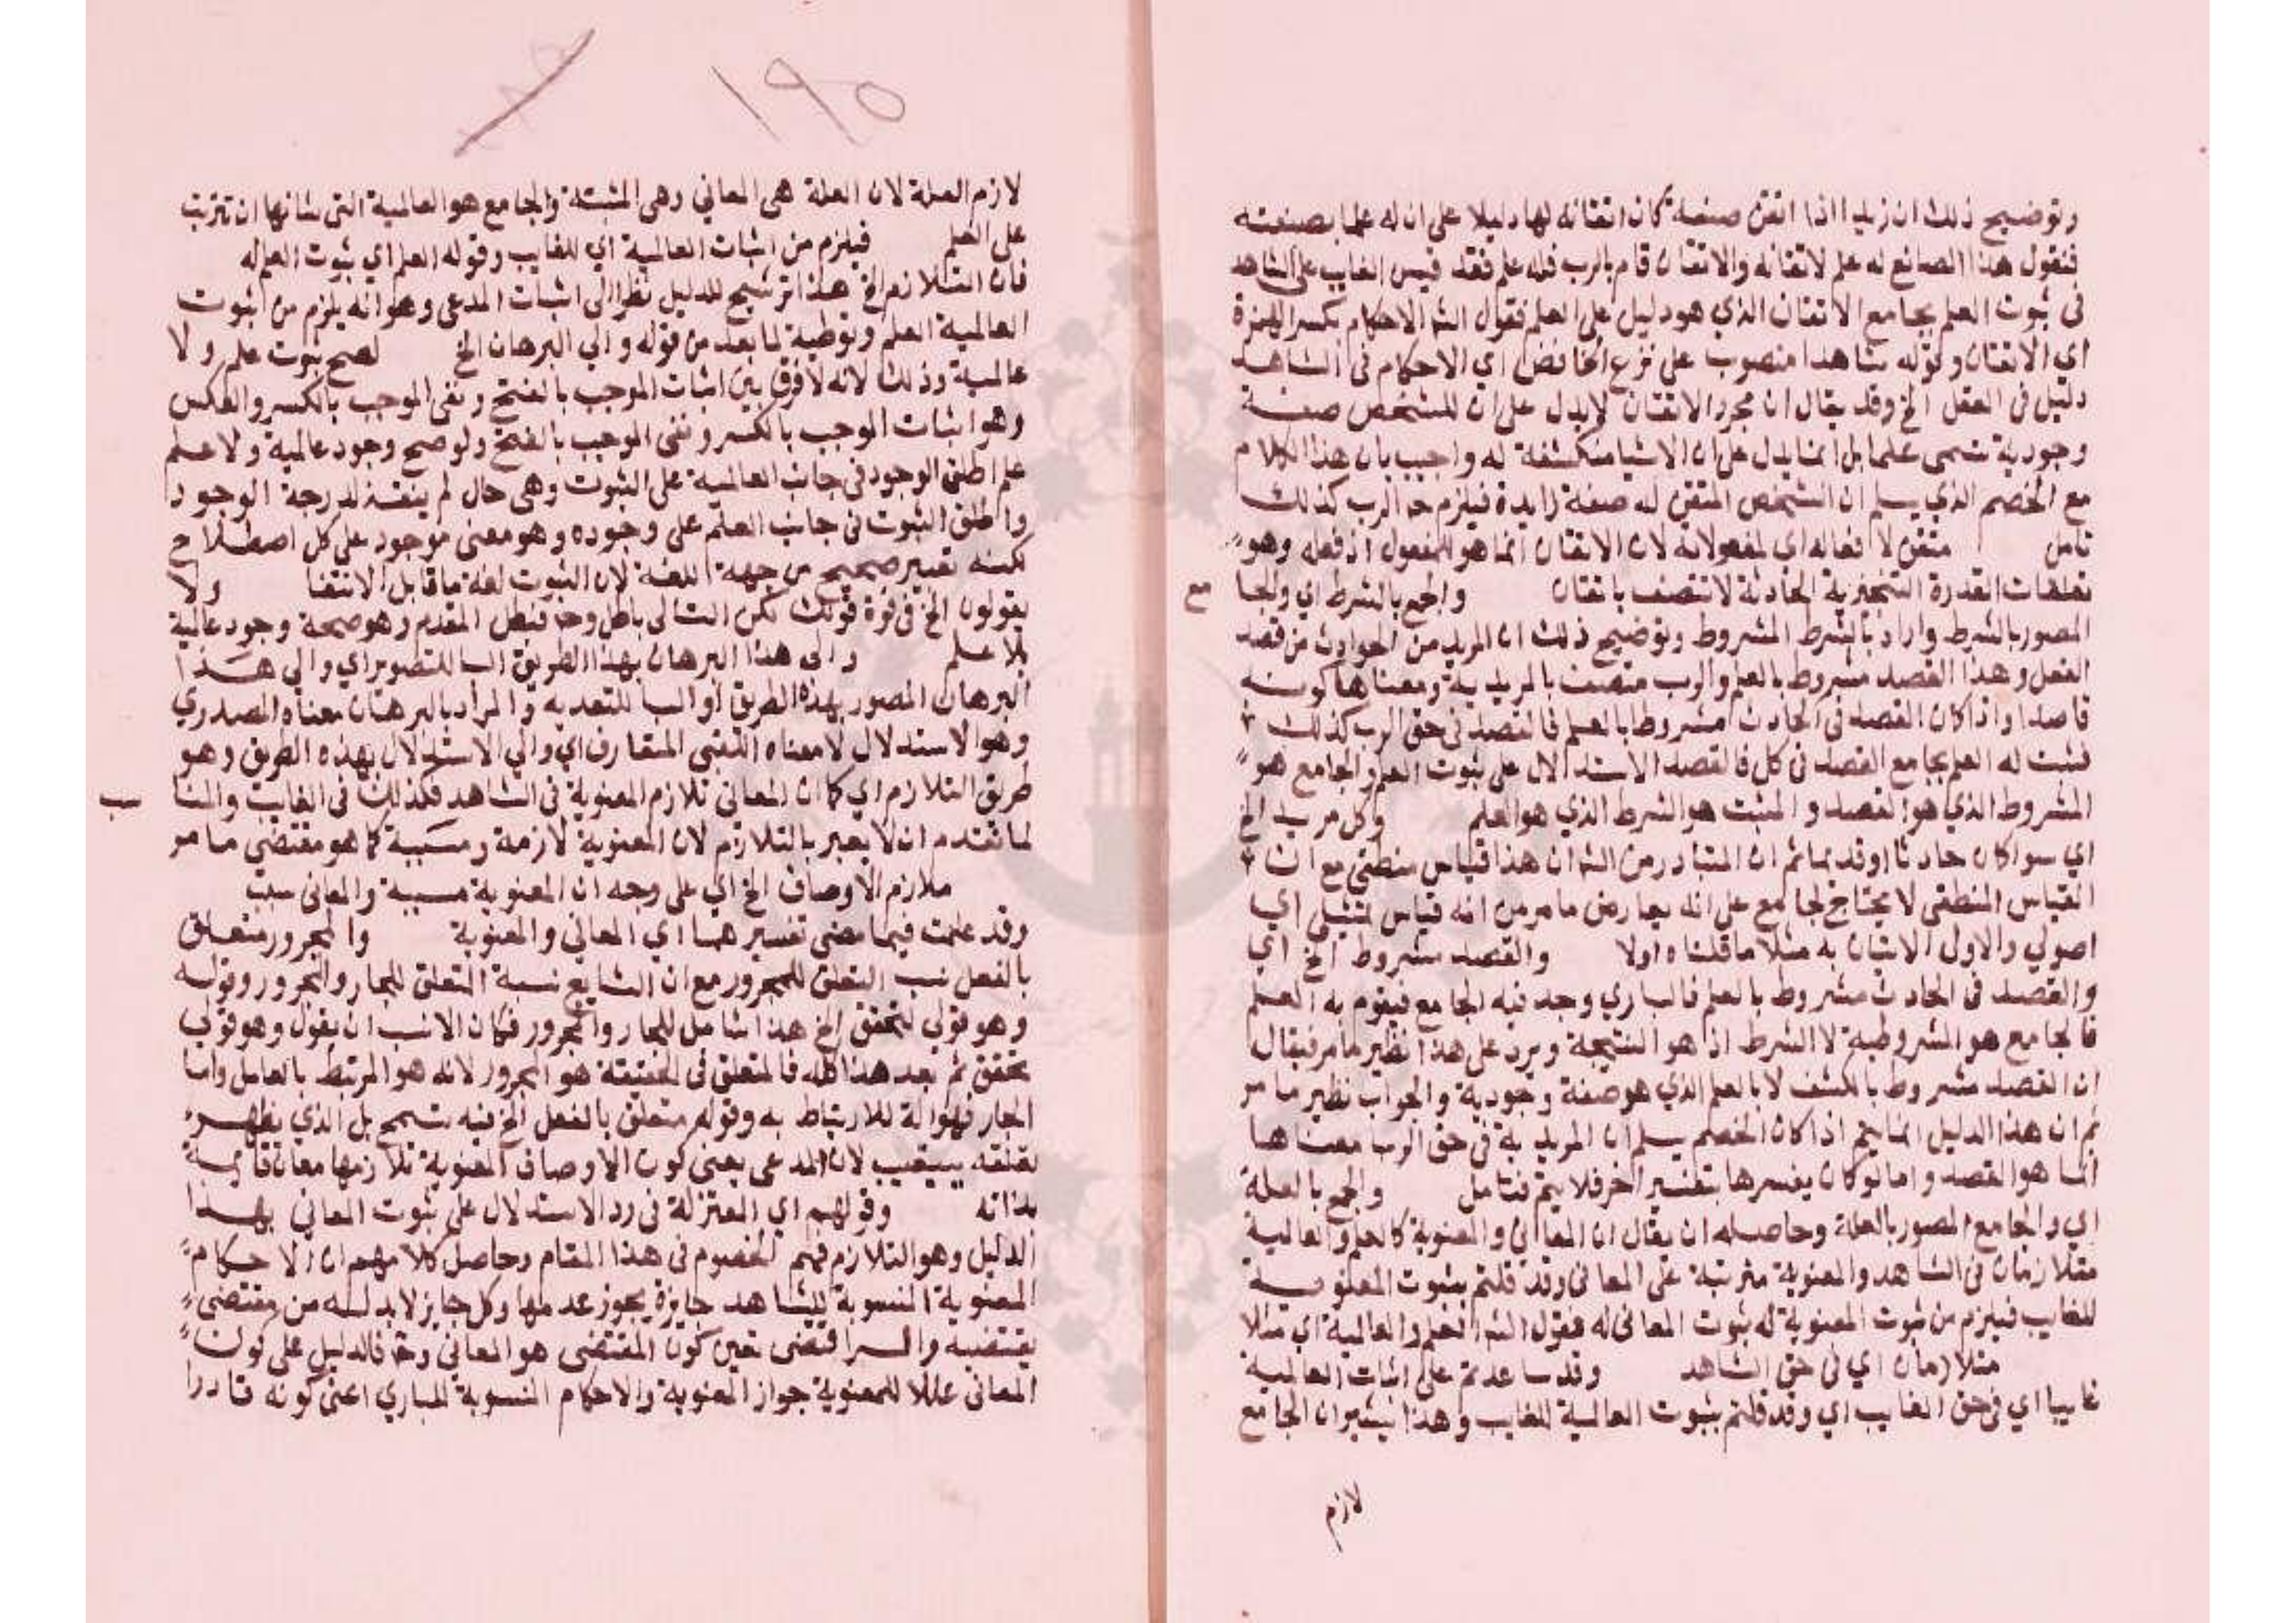 وتوضيح ذلك ان زيدا اذا اتقن صنعة كان اتقانه لها دليلا على ان له علما بصنعته
فنقول هذا الصانع له علم لاتقانه والاتقان قام بالرب فله علم فقد قيس الغايب على الشاهد
فى ثبوت العلم بجامع الاتقان الذي هو دليل على العلم فقول الشم الاحكام بكسر الهمزة
اي الاتقان وقوله شاهدا منصوب على نزع الخافض اي الاحكام فى الشاهد
دليل فى العقل الخ وقد يقال ان مجرد الاتقان لا يدل على ان للشخص صفة
وجودية تسمى علما بل انما يدل على ان الاشيا منكشفة له واجيب بان هذا الكلام
مع الخصم الذي يسلم ان الشخص المتقن له صفة زايدة فيلزم ح الرب كذلك
تامل متقن لافعاله اي لمفعولاته لان الاتقان انما هو للمفعول اذ فعله وهو
تعلقات القدرة التنجيزية الحادثة لا تتصف باتقان والجمع بالشرط اي والجا مع
المصور بالشرط واراد بالشرط المشروط وتوضيح ذلك ان المريد من الحوادث من قصد
الفعل وهذا القصد مشروط بالعلم والرب متصف بالمريدية ومعناها كونه
قاصدا واذا كان القصد فى الحادث مشروطا بالعلم فالقصد فى حق الرب كذلك
فثبت له العلم بجامع القصد فى كل فالقصد الاستدلال على ثبوت العلم والجامع هو
المشروط الذي هو القصد والمثبت هو الشرط الذي هو العلم وكل مريد الخ
اي سوا كان حادثا او قديما ثم ان المتبادر من الشم ان هذا قياس منطقى مع ان
القياس المنطقى لا يحتاج لجامع على انه يعارض ما مر من انه قياس تمثيلى اي
اصولي والاول الاتيان به مثلا ما قلناه اولا والقصد مشروط الخ اي
والقصد فى الحادث مشروط بالعلم فالباري وجد فيه الجامع فيقوم به العلم
فالجامع هو المشروطية لا الشرط اذ هو النتيجة ويرد على هذا نظير ما مر فيقال
ان القصد مشروط بالكشف لا بالعلم الذي هو صفة وجودية والجواب نظير ما مر
ثم ان هذا الدليل انما يتم اذا كان الخصم يسلم ان المريدية فى حق الرب معناها
انما هو القصد واما لو كان يفسرها بتفسير اخر فلا يتم فتامل والجمع بالعلة
اي والجامع المصور بالعلة وحاصله ان يقال ان المعانى والمعنوية كالعلم والعالمية
متلازمان فى الشاهد والمعنوية مترتبة على المعانى وقد قلتم بثبوت المعنوية
للغايب فيلزم من ثبوت المعنوية له ثبوت المعانى له فقول الشم العلم والعالمية اي مثلا
متلازمان اي فى حق الشاهد وقد ساعدتم على اثبات العالمية
غايبا اي فى حق الغايب اي وقد قلتم بثبوت العالمية للغايب وهذا يشير ان الجامع
لازم
١٩٥
لازم العلة لان العلة هى المعاني وهى المثبتة والجامع هو العالمية التى شانها ان تترتب
على العلم فيلزم من اثبات العالمية اي للغايب وقوله العلم اي ثبوت العلم له
فان التلازم الخ هذا ترشيح للدليل نظرا الى اثبات المدعى وهو انه يلزم من ثبوت
العالمية العلم وتوطية لما بعد من قوله والي البرهان الخ لصح ثبوت علم ولا
عالمية وذلك لانه لا فرق بين اثبات الموجب بالفتح ونفى الموجب بالكسر والعكس
وهو اثبات الموجب بالكسر ونفى الموجب بالفتح ولو صح وجود عالمية ولا علم
علم اطلق الوجود فى جانب العالمية على الثبوت وهى حال لم ينته لدرجة الوجود
واطلق الثبوت فى جانب العلم على وجوده وهو معنى موجود على كل اصطلاح
لكنه تعبير صحيح من جهة اللغة لان الثبوت لغة ما قابل الانتفا ولا
يقولون الخ فى قوة قولك لكن التالى باطل وح فبطل المقدم وهو صحة وجود عالمية
بلا علم والى هذا البرهان بهذا الطريق البا للتصوير اي والى هذا
البرهان المصور بهذه الطريق او البا للتعدية والمراد بالبرهان معناه المصدري
وهو الاستدلال لا معناه المتعارف اي والي الاستدلال بهذه الطريق وهو
طريق التلازم اي كما ان المعانى تلازم المعنوية فى الشاهد فكذلك فى الغايب والمنا سب
لما تقدم ان لا يعبر بالتلازم لان المعنوية لازمة ومسببة كما هو مقتضى ما مر
ملازم الاوصاف الخ اي على وجه ان المعنوية مسببة والمعانى سبب
وقد علمت فيما مضى تفسيرهما اي المعاني والمعنوية والمجرور متعلق
بالفعل نسب التعلق للمجرور مع ان الشايع نسبة التعلق للجار والمجرور وقوله
وهو قولي لتحقق الخ هذا شامل للجار والمجرور فكان الانسب ان يقول وهو قولي
تحقق ثم بعد هذا كله فالمتعلق فى الحقيقة هو المجرور لانه هو المرتبط بالعامل واما
الجار فهو الة للارتباط به وقوله متعلق بالفعل الخ فيه تسمح بل الذي يظهر
تعلقه بيستعيب لان المدعى يعنى كون الاوصاف المعنوية تلازمها معان قايمة
بذاته وقولهم اي المعتزلة فى رد الاستدلال على ثبوت المعاني بهذا
الدليل وهو التلازم فهم الخصوم فى هذا المقام وحاصل كلامهم ان الاحكام
المعنوية المنسوبة للشاهد جايزة يجوز عدمها وكل جايز لابد له من مقتضى
يقتضيه والسر اقتضى تعين كون المقتضى هو المعانى وح فالدليل على كون
المعانى عللا للمعنوية جواز المعنوية والاحكام المنسوبة للباري اعنى كونه قادرا